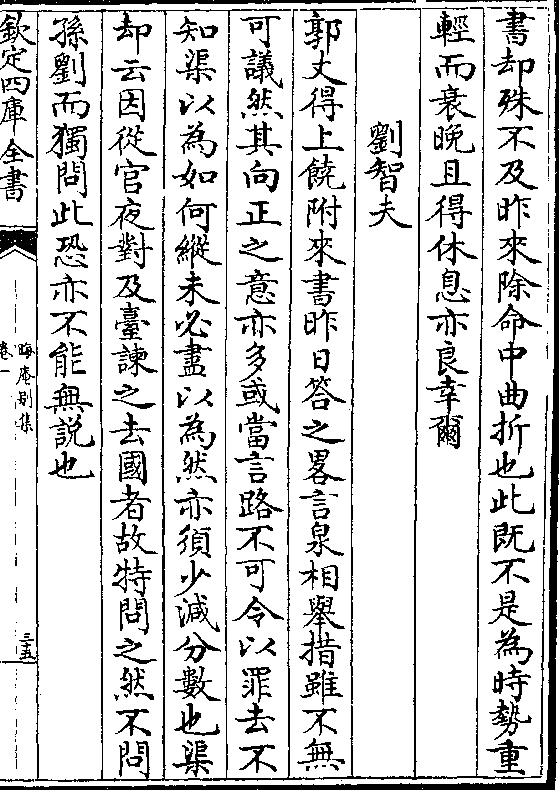 書却殊不及昨來除命中曲折也此既不是為時勢重
輕而衰晚且得休息亦良幸爾
劉智夫
郭丈得上饒附來書昨日答之畧言泉相舉措雖不無
可議然其向正之意亦多或當言路不可令以罪去不
知渠以為如何縱未必盡以為然亦須少減分數也渠
却云因從官夜對及臺諫之去國者故特問之然不問
孫劉而獨問此恐亦不能無説也
欽定四庫全書
晦庵别集
卷一
三五